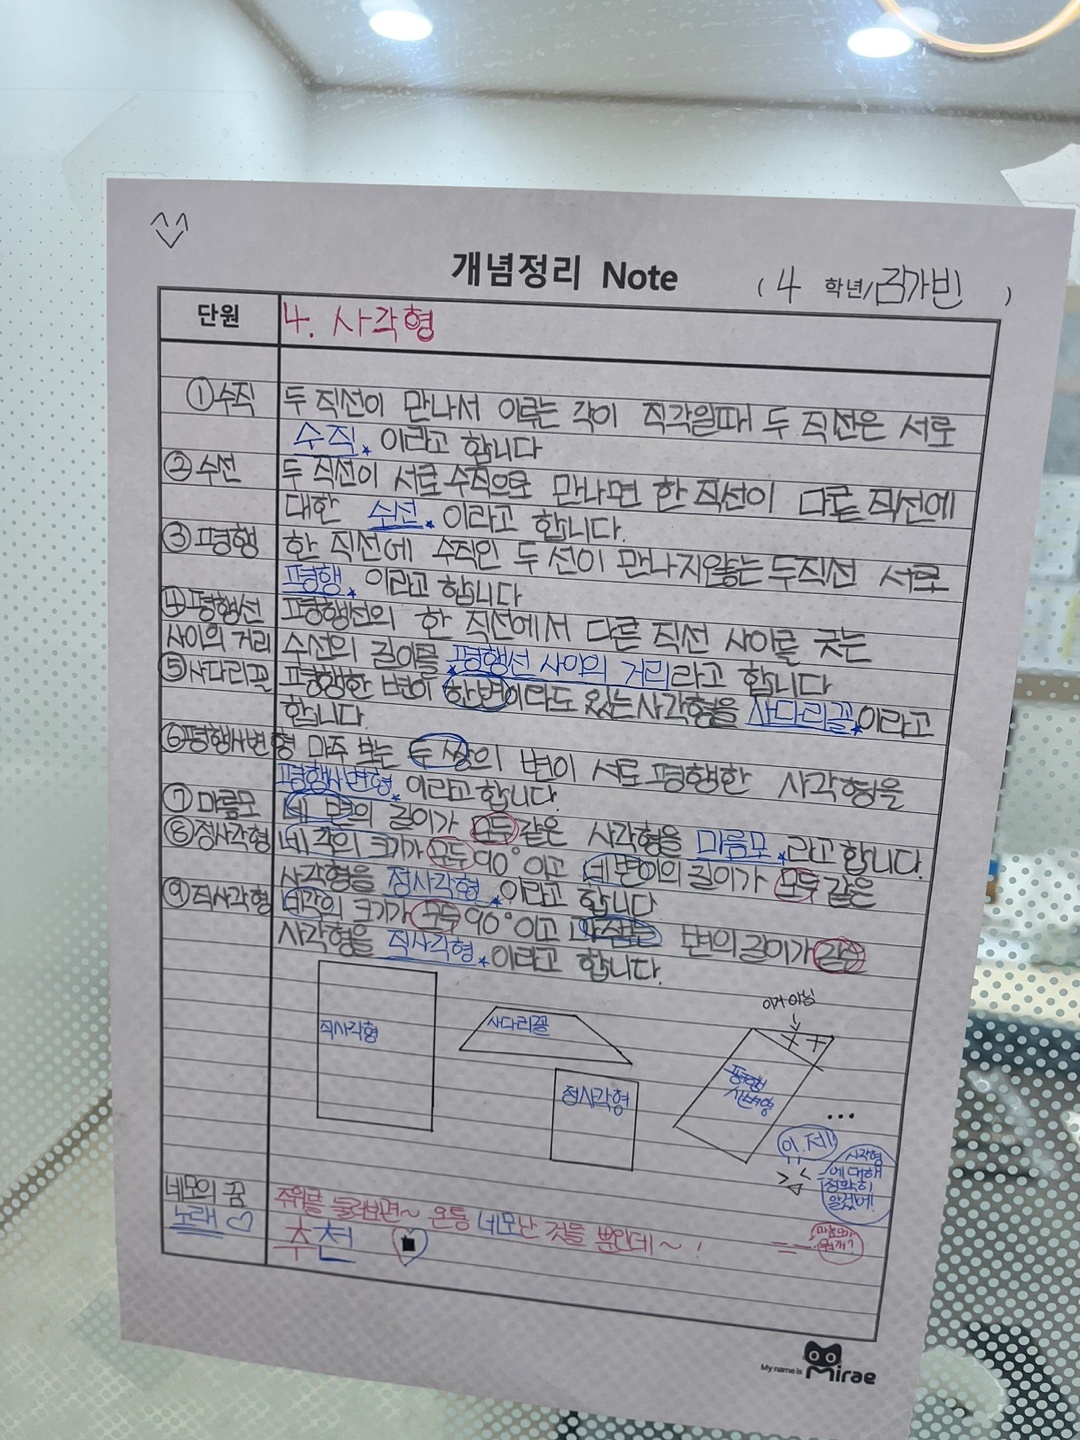 개념정리 Note ( 4 학년/김가빈 )
단원 4. 사각형
①수직 두 직선이 만나서 이루는 각이 직각일때 두 직선은 서로
수직 이라고 합니다
②수선 두 직선이 서로 수직으로 만나면 한 직선이 다른 직선에
대한 수선 이라고 합니다.
③평행 한 직선에 수직인 두 선이 만나지않는 두직선 서로
평행 이라고 합니다
④평행선 평행선의 한 직선에서 다른 직선 사이를 긋는
사이의 거리 수선의 길이를 평행선 사이의 거리라고 합니다
⑤사다리꼴 평행한 변이 한변이라도 있는 사각형을 사다리꼴 이라고
합니다.
⑥평행사변형 마주 보는 두 쌍의 변이 서로 평행한 사각형을
평행사변형 이라고 합니다.
⑦마름모 네 변의 길이가 모두 같은 사각형을 마름모 라고 합니다.
⑧정사각형 네 각의 크기가 모두 90°이고 네변이의 길이가 모두 같은
사각형을 정사각형 이라고 합니다
⑨직사각형 네각의 크기가 모두 90°이고 변의 길이가 같은
사각형을 직사각형 이라고 합니다.
직사각형
사다리꼴
정사각형
이거 아님
평행
사변형
...
이제!
사각형
에 대해
정확히
알겠어!
네모의 꿈
노래♡
주위를 둘러보면~ 온통 네모난 것들 뿐인데~!
추천
마름모는
뭘까?
My name is Mirae